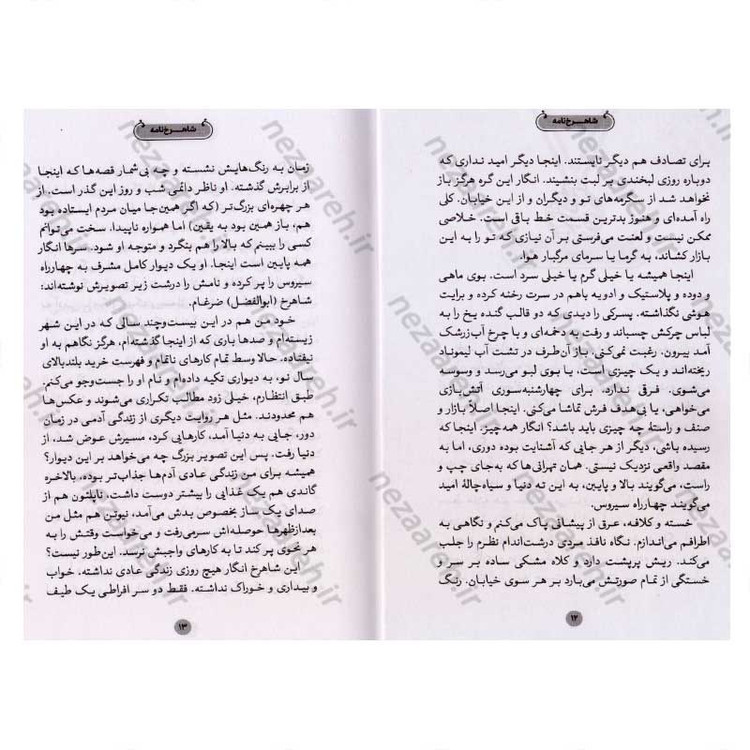 شاهرخ‌نامه
برای تصادف هم دیگر نایستند. اینجا دیگر امید نداری که
دوباره روزی لبخندی بر لبت بنشیند. انگار این گره هرگز باز
نخواهد شد از سگرمه‌های تو و دیگران و از این خیابان. کلی
راه آمده‌ای و هنوز بدترین قسمت خط باقی است. خلاصی
ممکن نیست و لعنت می‌فرستی بر آن نیازی که تو را به این
بازار کشاند، به گرما یا سرمای مرگبار هوا.
اینجا همیشه یا خیلی گرم یا خیلی سرد است. بوی ماهی
و دوده و پلاستیک و ادویه باهم در سرت رخنه کرده و برایت
هوشی نگذاشته. پسرکی را دیدی که دو قالب گنده یخ را به
لباس چرکش چسباند و رفت به دخمه‌ای و با چرخ آب‌زرشک
آمد بیرون. رغبت نمی‌کنی. باز آن‌طرف در تشت آب لیموناد
ریخته‌اند و یک چیزی است، یا بوی لبو می‌رسد و وسوسه
می‌شوی. فرقی ندارد. برای چهارشنبه‌سوری آتش‌بازی
می‌خواهی، یا بی‌هدف فرش تماشا می‌کنی. اینجا اصلاً بازار و
صنف و راستهٔ چه چیزی باید باشد؟ انگار همه‌چیز. اینجا که
رسیده باشی، دیگر از هر جایی که آشنایت بوده دوری، اما به
مقصد واقعی نزدیک نیستی. همان تهرانی‌ها که به‌جای چپ و
راست، می‌گویند بالا و پایین، به این ته دنیا و سیاه‌چالهٔ امید
می‌گویند چهارراه سیروس.
خسته و کلافه، عرق از پیشانی پاک می‌کنم و نگاهی به
اطرافم می‌اندازم. نگاه نافذ مردی درشت‌اندام نظرم را جلب
می‌کند. ریش پرپشت دارد و کلاه مشکی ساده بر سر و
خستگی از تمام صورتش می‌بارد بر هر سوی خیابان. رنگ
۱۲
شاهرخ‌نامه
زمان به رنگ‌هایش نشسته و چه بی‌شمار قصه‌ها که اینجا
از برابرش گذشته. او ناظر دائمی شب و روز این گذر است. از
هر چهره‌ای بزرگ‌تر (که اگر همین‌جا میان مردم ایستاده بود
هم، باز همین بود به یقین) اما همواره ناپیدا. سخت می‌توانم
کسی را ببینم که بالا را هم بنگرد و متوجه او شود. سرها انگار
همه پایین است اینجا. او یک دیوار کامل مشرف به چهارراه
سیروس را پر کرده و نامش را درشت زیر تصویرش نوشته‌اند:
شاهرخ (ابوالفضل) ضرغام.
خود من هم در این بیست‌وچند سالی که در این شهر
زیسته‌ام و صدها باری که از اینجا گذشته‌ام، هرگز نگاهم به او
نیفتاده. حالا وسط تمام کارهای ناتمام و فهرست خرید بلندبالای
سال نو، به دیواری تکیه داده‌ام و نام او را جست‌وجو می‌کنم.
طبق انتظارم، خیلی زود مطالب تکراری می‌شوند و عکس‌ها
هم محدودند. مثل هر روایت دیگری از زندگی آدمی در زمان
دور، جایی به دنیا آمد، کارهایی کرد، مسیرش عوض شد، از
دنیا رفت. پس این تصویر بزرگ چه می‌خواهد بر این دیوار؟
همیشه برای من زندگی عادی آدم‌ها جذاب‌تر بوده. بالاخره
گاندی هم یک غذایی را بیشتر دوست داشت، ناپلئون هم از
صدای یک ساز بخصوص بدش می‌آمد، نیوتن هم مثل من
بعدازظهرها حوصله‌اش سرمی‌رفت و می‌خواست وقتش را به
هر نحوی پر کند تا به کارهای واجبش نرسد. این‌طور نیست؟
این شاهرخ انگار هیچ روزی زندگی عادی نداشته. خواب
و بیداری و خوراک نداشته. فقط دو سر افراطی یک طیف
۱۳
nezaareh.ir
nezaareh.ir
nezaareh.ir
nezaareh.ir
nezaareh.ir
nezaareh.ir